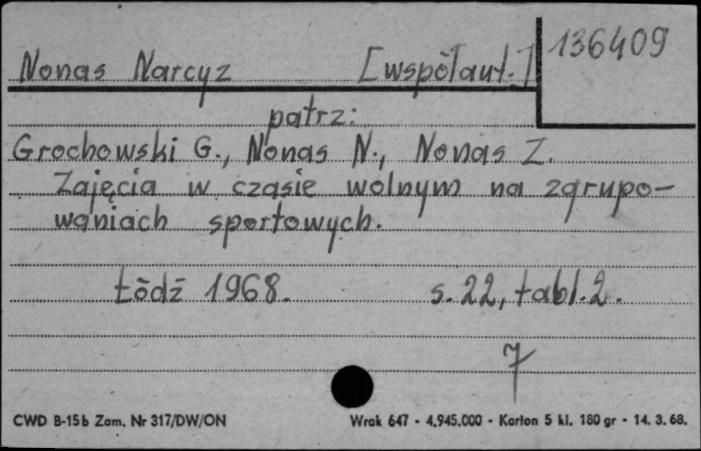 136409
Nonas Narcyz [współaut.]
patrz:
Grochowski G., Nonas N., Nonas Z.
Zajęcia w czasie wolnym na zgrupo-
waniach sportowych.
Łódź 1968. s. 22, tabl. 2.
7
CWD B-15b Zam. Nr 317/DW/ON Wrak 647 - 4.945.000 - Karton 5 kl. 180 gr - 14. 3. 68.